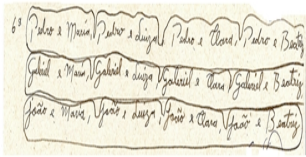 6ª Pedro e Maria, Pedro e Luiza, Pedro e Clara, Pedro e Beatriz
Gabriel e Maria, Gabriel e Luiza, Gabriel e Clara, Gabriel e Beatriz,
João e Maria, João e Luiza, João e Clara, João e Beatriz.